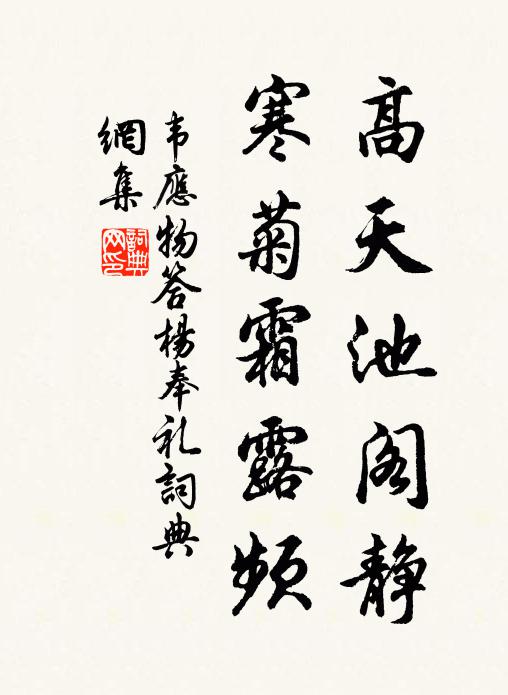 高天池阁静
寒菊霜露频
韦應物答楊奉礼詞典
網集
詞典
网印